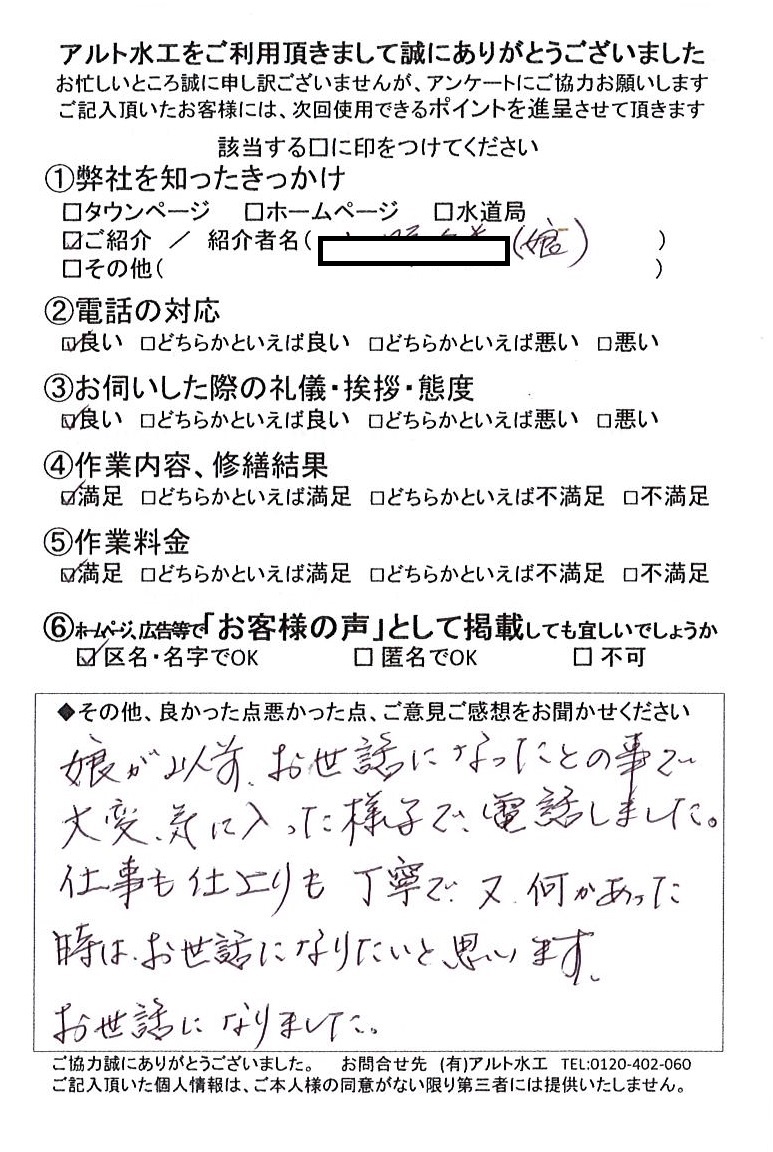 アルト水工をご利用頂きまして誠にありがとうございました
お忙しいところ誠に申し訳ございませんが、アンケートにご協力お願いします
ご記入頂いたお客様には、次回使用できるポイントを進呈させて頂きます
該当する口に印をつけてください
①弊社を知ったきっかけ
□タウンページ □ホームページ □水道局
☑ご紹介 ／ 紹介者名( (娘) )
□その他( )
②電話の対応
☑良い □どちらかといえば良い □どちらかといえば悪い □悪い
③お伺いした際の礼儀・挨拶・態度
☑良い □どちらかといえば良い □どちらかといえば悪い □悪い
④作業内容、修繕結果
☑満足 □どちらかといえば満足 □どちらかといえば不満足 □不満足
⑤作業料金
☑満足 □どちらかといえば満足 □どちらかといえば不満足 □不満足
⑥ホームページ、広告等で「お客様の声」として掲載しても宜しいでしょうか
☑区名・名字でOK □ 匿名でOK □ 不可
◆その他、良かった点悪かった点、ご意見ご感想をお聞かせください
娘が以前、お世話になったとの事で
大変、気に入った様子で、電話しました。
仕事も仕上りも 丁寧で 又、何かあった
時は、お世話になりたいと思います、
お世話になりました。
ご協力誠にありがとうございました。 お問合せ先 (有)アルト水工 TEL:0120-402-060
ご記入頂いた個人情報は、ご本人様の同意がない限り第三者には提供いたしません。